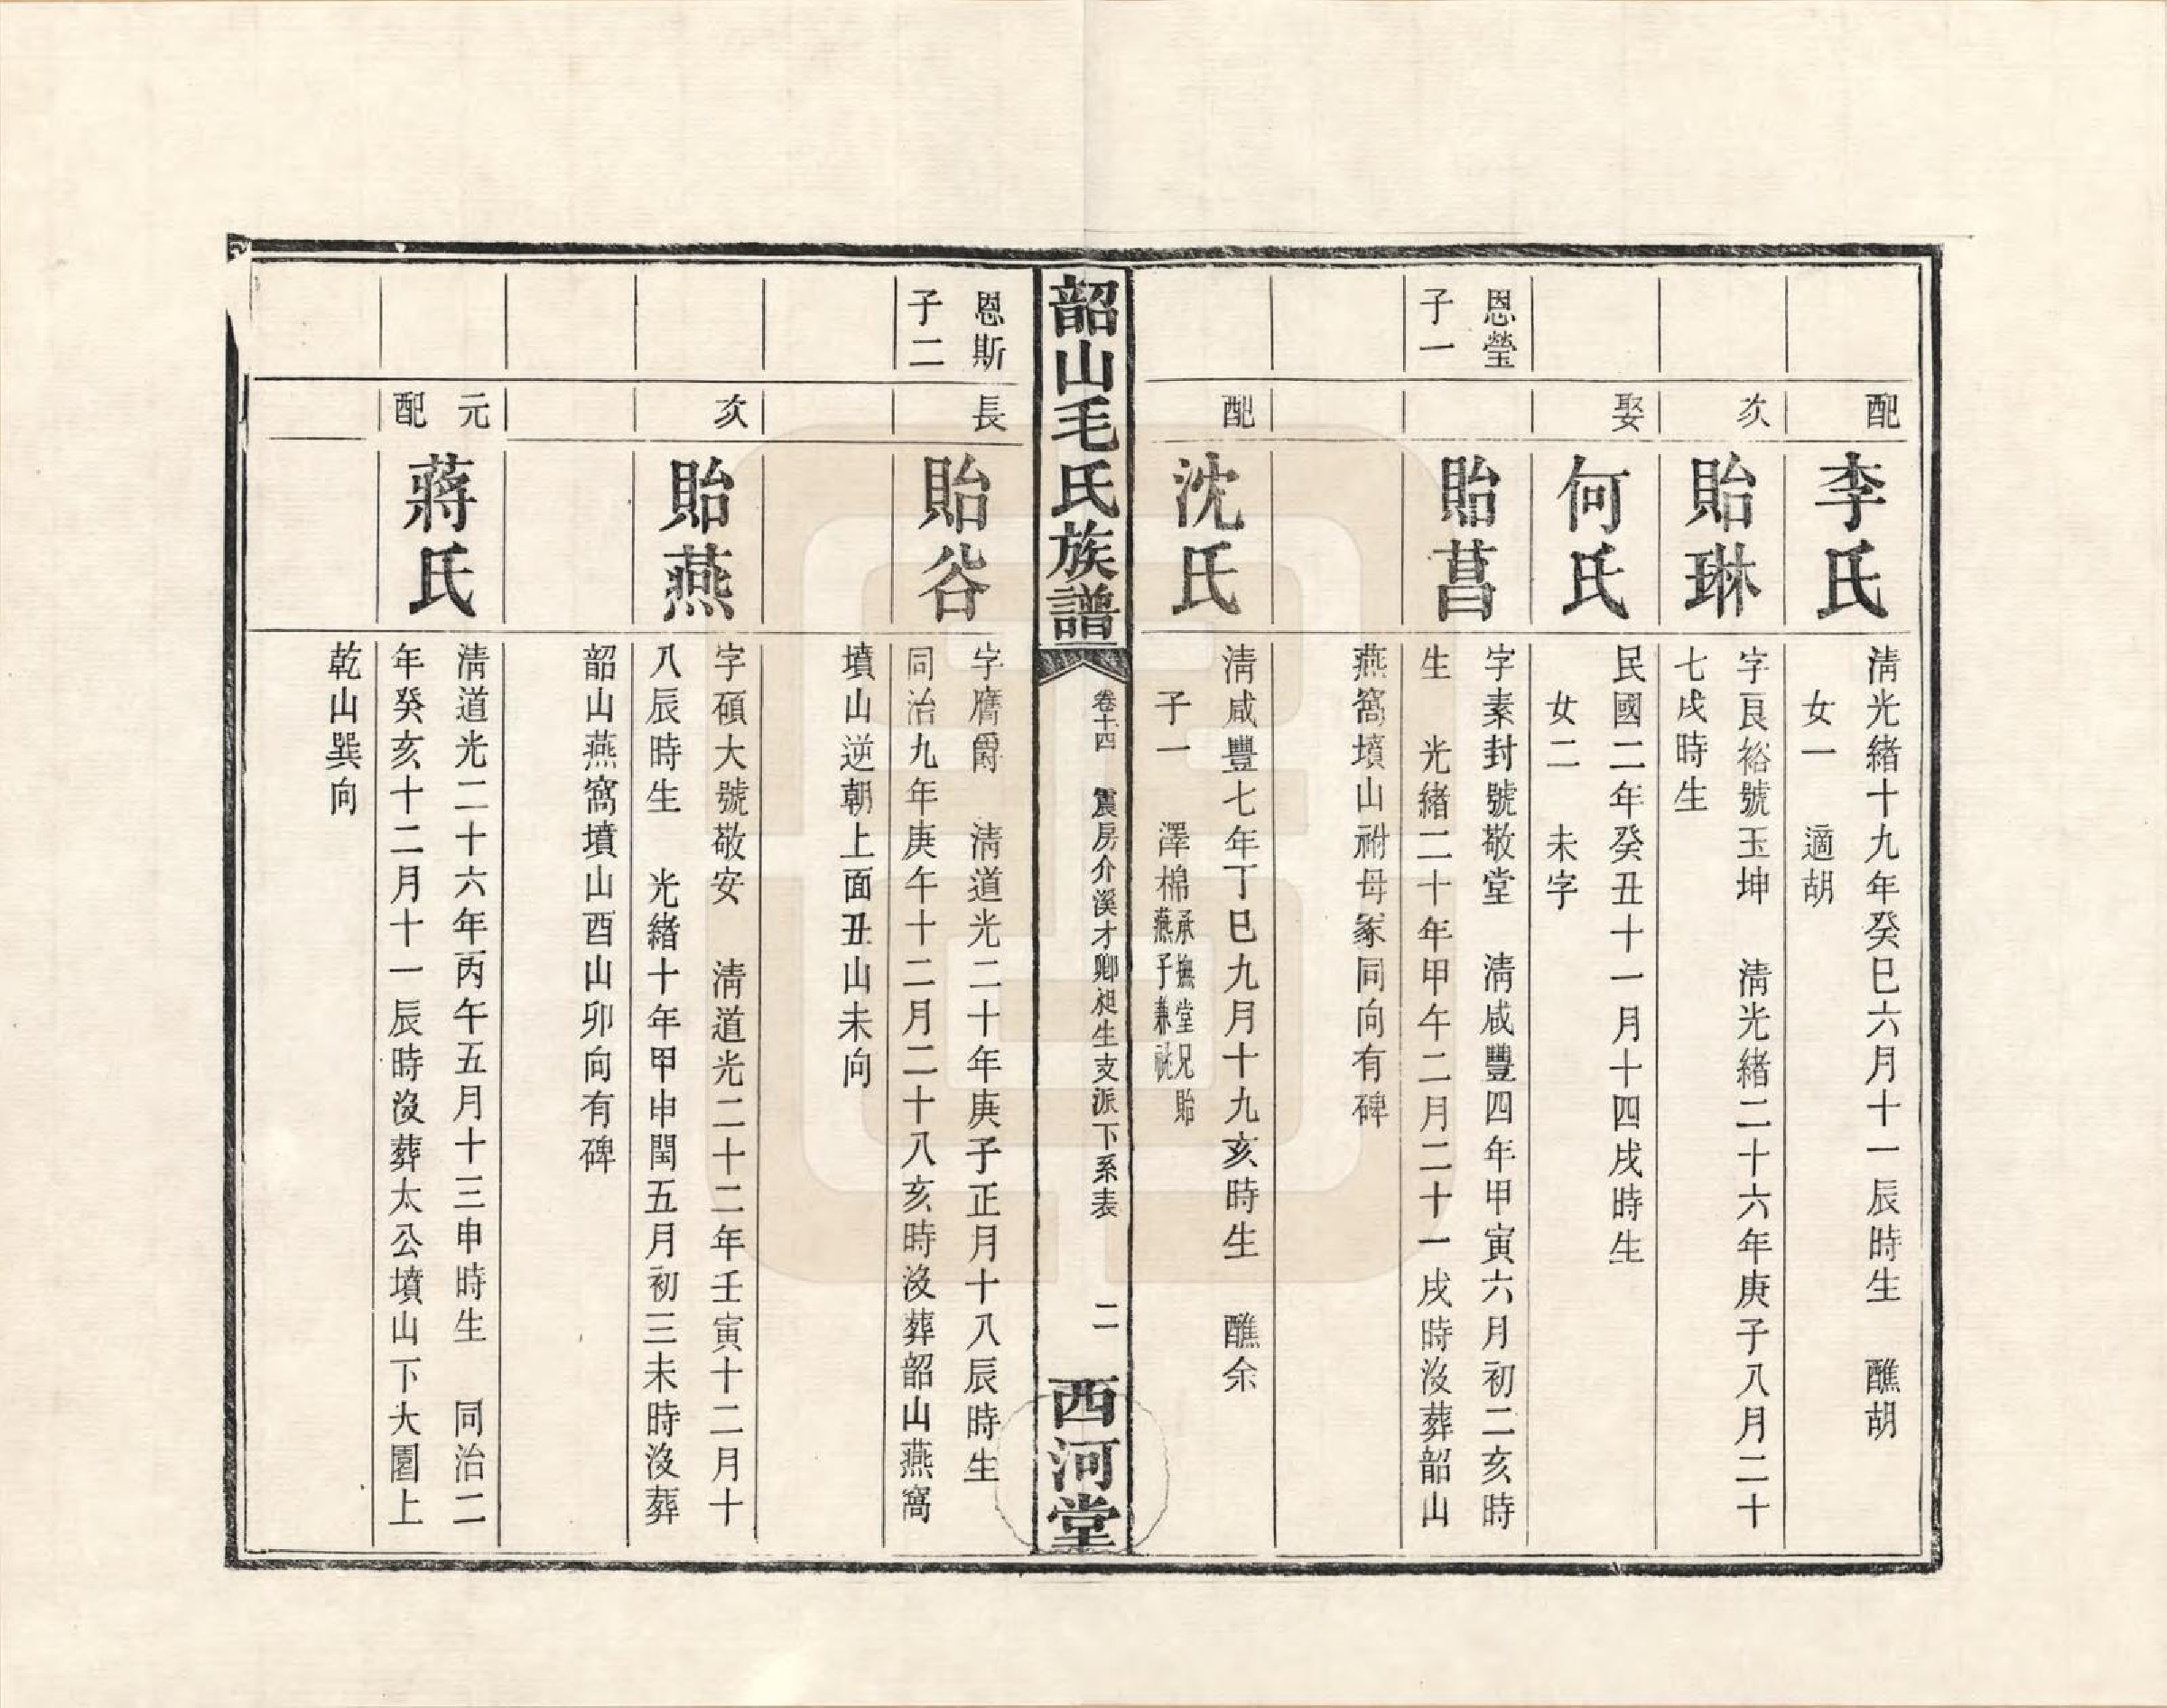 配
李氏
淸光緒十九年癸巳六月十一辰時生　醮胡
女一　適胡
次
貽琳
字艮裕號玉坤　淸光緒二十六年庚子八月二十
七戌時生
娶
何氏
民國二年癸丑十一月十四戌時生
女二　未字
恩瑩
子一
貽菖
字素封號敬堂　淸咸豐四年甲寅六月初二亥時
生　光緒二十年甲午二月二十一戌時沒葬韶山
燕窩墳山祔母冢同向有碑
配
沈氏
淸咸豐七年丁巳九月十九亥時生　醮余
子一　澤棉承撫堂兄貽
燕子兼祧
韶山毛氏族譜
卷十四　震房介溪才卿昶生支派下系表　二
西河堂
恩斯
子二
長
貽谷
字膺爵　淸道光二十年庚子正月十八辰時生
同治九年庚午十二月二十八亥時沒葬韶山燕窩
墳山逆朝上面丑山未向
次
貽燕
字碩大號敬安　淸道光二十二年壬寅十二月十
八辰時生　光緒十年甲申閏五月初三未時沒葬
韶山燕窩墳山酉山卯向有碑
元
配
蔣氏
淸道光二十六年丙午五月十三申時生　同治二
年癸亥十二月十一辰時沒葬太公墳山下大園上
乾山巽向